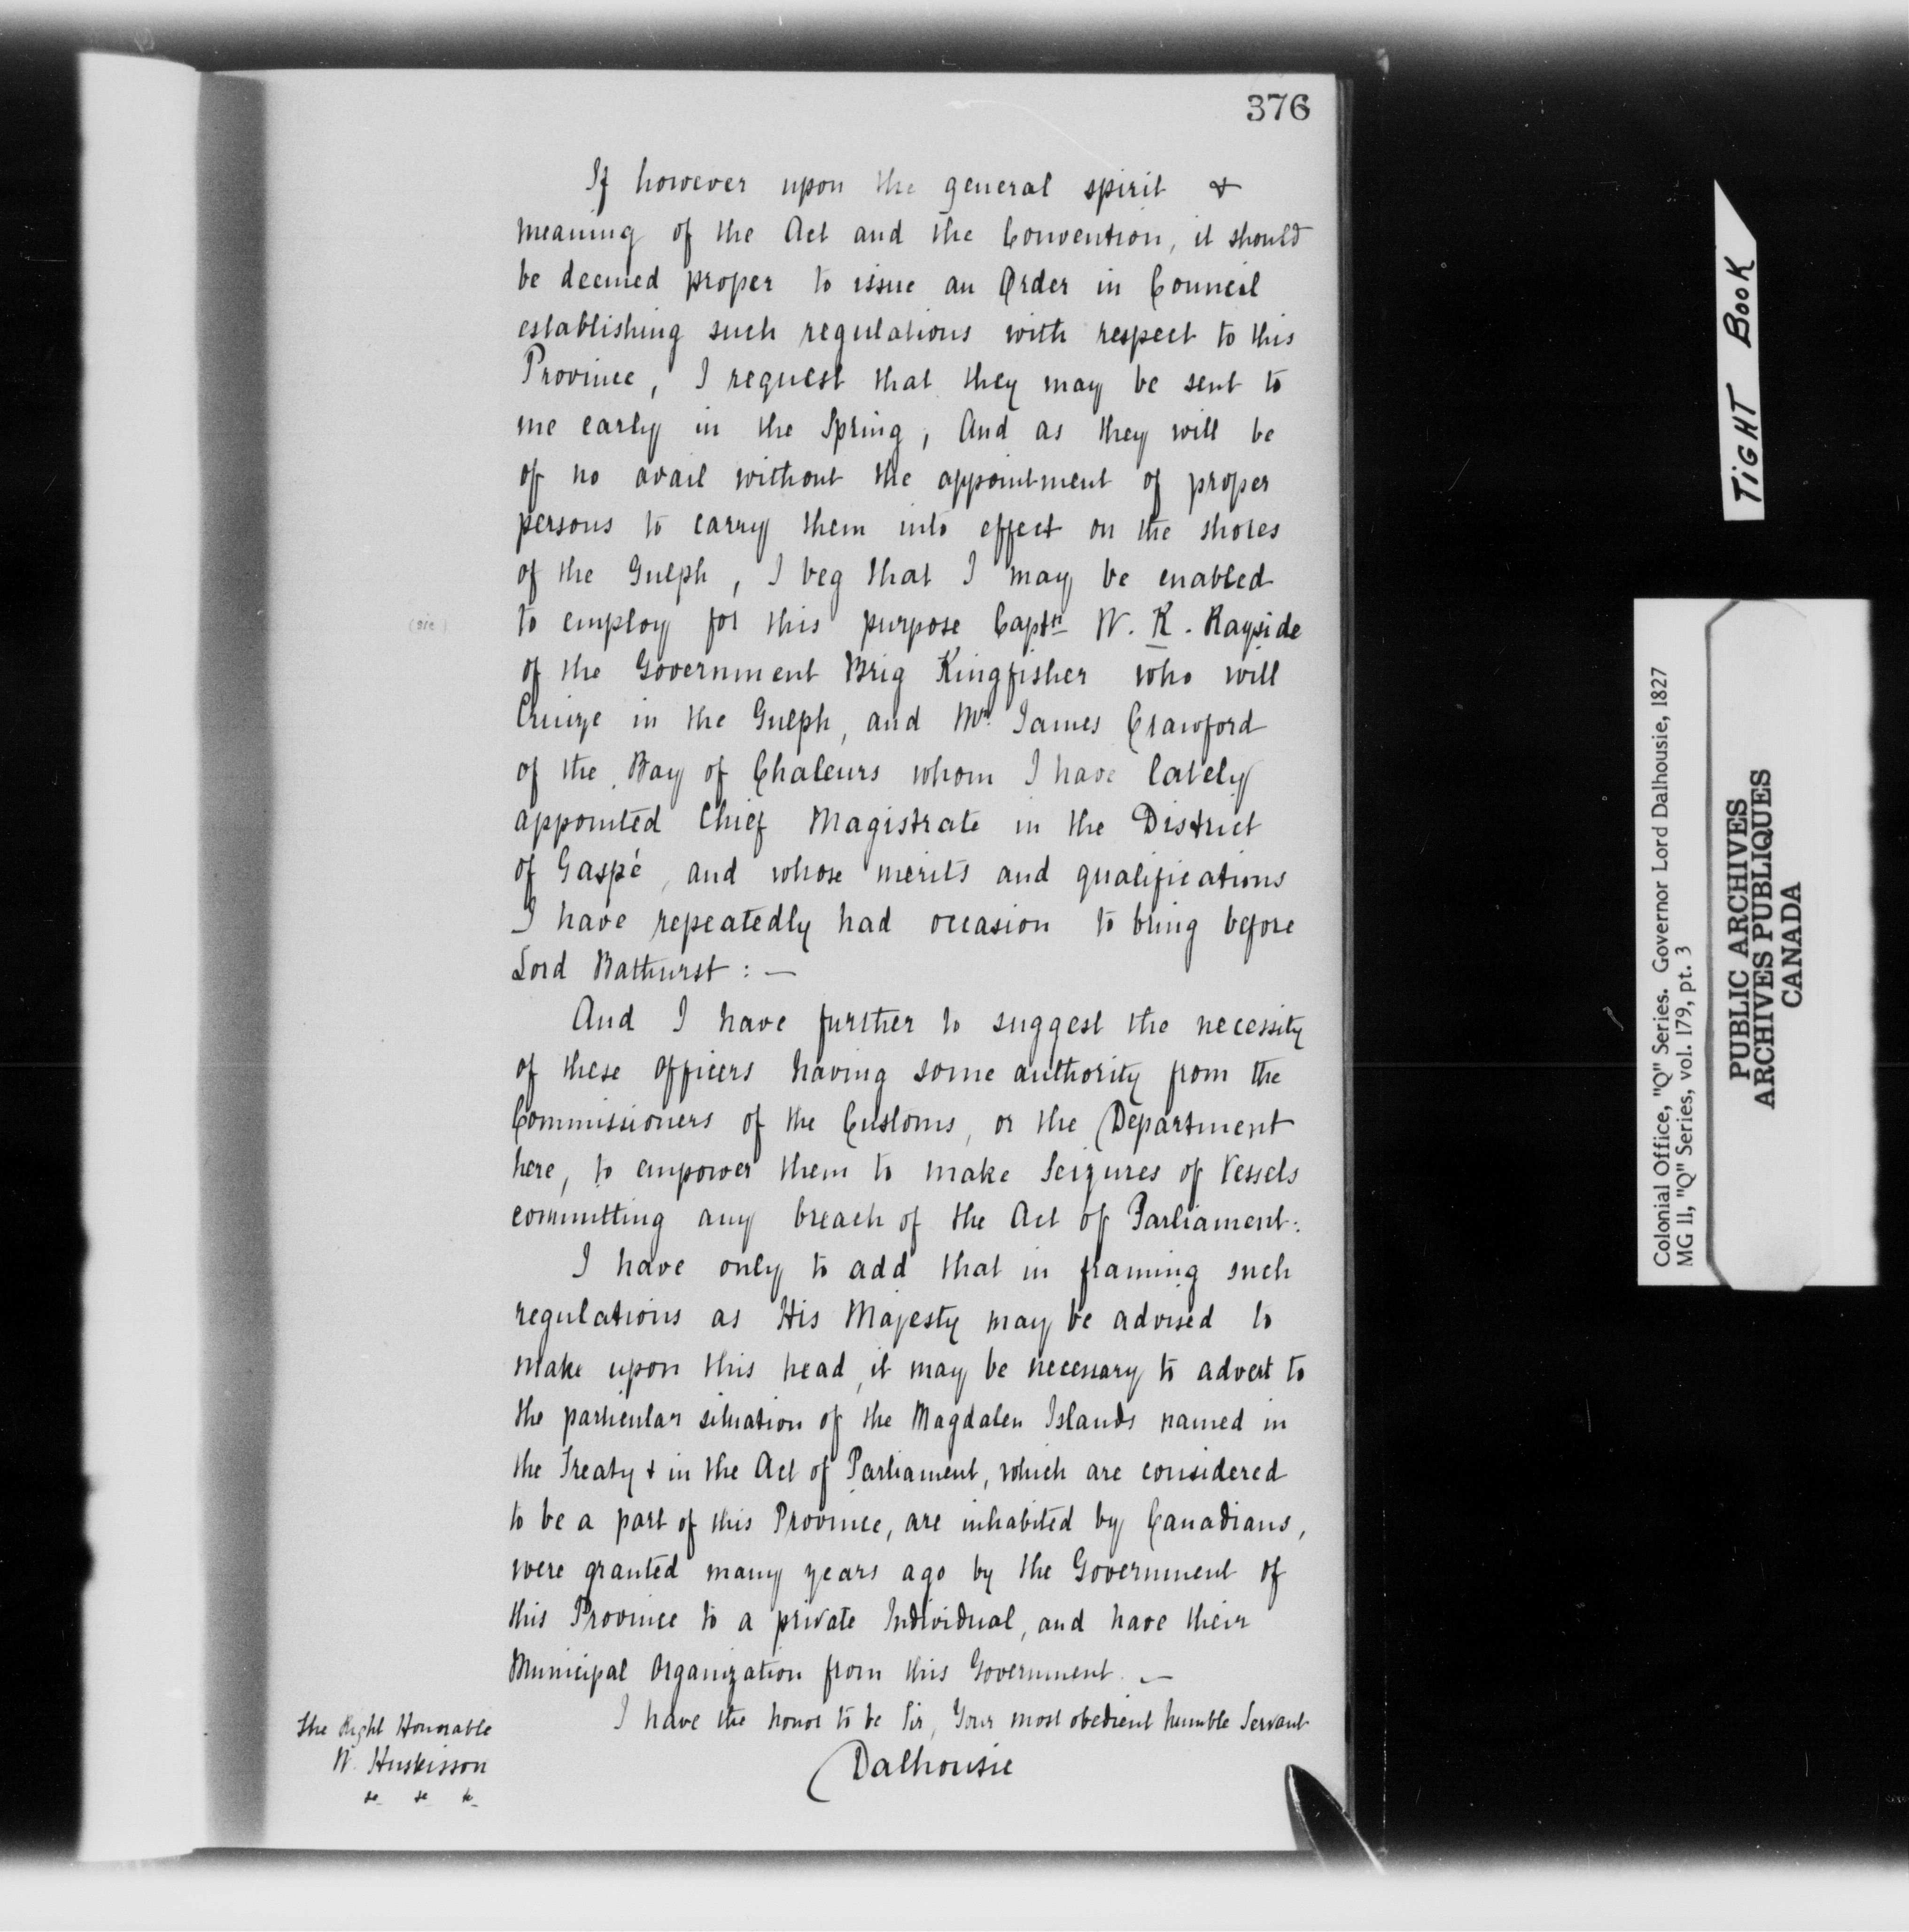 376
If however upon the general spirit &
meaning of the Act and the Convention, it should
be deemed proper to issue an Order in Council
establishing such regulations with respect to this
Province, I request that they may be sent to
me early in the Spring, And as they will be
of no avail without the appointment of proper
persons to carry them into effect on the shores
of the Gulph, I beg that I may be enabled
(sic)
to employ for this purpose Captn W. K. Rayside
of the Government Brig Kingfisher who will
Cruize in the Gulph, and Mr James Crawford
of the Bay of Chaleurs whom I have lately
appointed Chief Magistrate in the District
of Gaspé, and whose merits and qualifications
I have repeatedly had occasion to bring before
Lord Bathurst : —
And I have further to suggest the necessity
of these Officers having some authority from the
Commissioners of the Customs, or the Department
here, to empower them to make Seizures of Vessels
committing any breach of the Act of Parliament:
I have only to add that in framing such
regulations as His Majesty may be advised to
make upon this head, it may be necessary to advert to
the particular situation of the Magdalen Islands named in
the Treaty & in the Act of Parliament, which are considered
to be a part of this Province, are inhabited by Canadians,
were granted many years ago by the Government of
this Province to a private Individual, and have their
Municipal Organization from this Government. —
I have the honor to be Sir, Your most obedient humble Servant
Dalhousie
The Right Honorable
W. Huskisson
&c &c &c
TIGHT BOOK
Colonial Office, "Q" Series. Governor Lord Dalhousie, 1827
MG 11, "Q" Series, vol. 179, pt. 3
PUBLIC ARCHIVES
ARCHIVES PUBLIQUES
CANADA